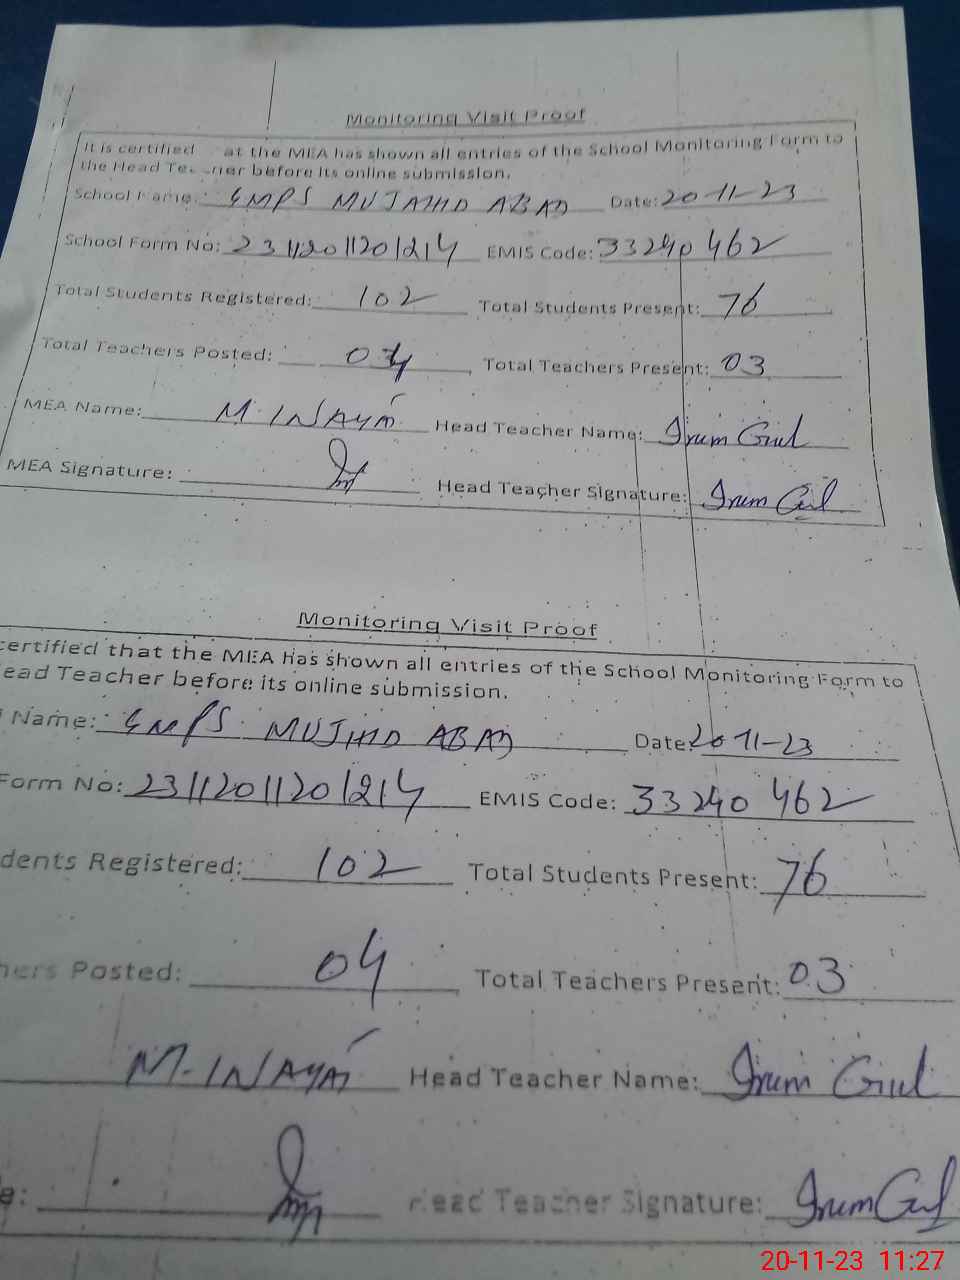 Monitoring Visit Proof
It is certified at the MEA has shown all entries of the School Monitoring Form to
the Head Te ner before its online submission.
School Name: GMPS MUJAHD ABAD Date: 20-11-23
School Form No: 23112011201214 EMIS Code: 33240462
Total Students Registered: 102 Total Students Present: 76
Total Teachers Posted: 04 Total Teachers Present: 03
MEA Name: M. INAYAT Head Teacher Name: Irum Gul
MEA Signature: Head Teacher Signature: Irum Gul
Monitoring Visit Proof
certified that the MEA has shown all entries of the School Monitoring Form to
ead Teacher before its online submission.
Name: GMPS MUJHD ABAD Date: 20-11-23
Form No: 23112011201214 EMIS Code: 33240462
dents Registered: 102 Total Students Present: 76
hers Posted: 04 Total Teachers Present: 03
M. INAYAT Head Teacher Name: Irum Gul
e: Head Teacher Signature: Irum Gul
20-11-23 11:27